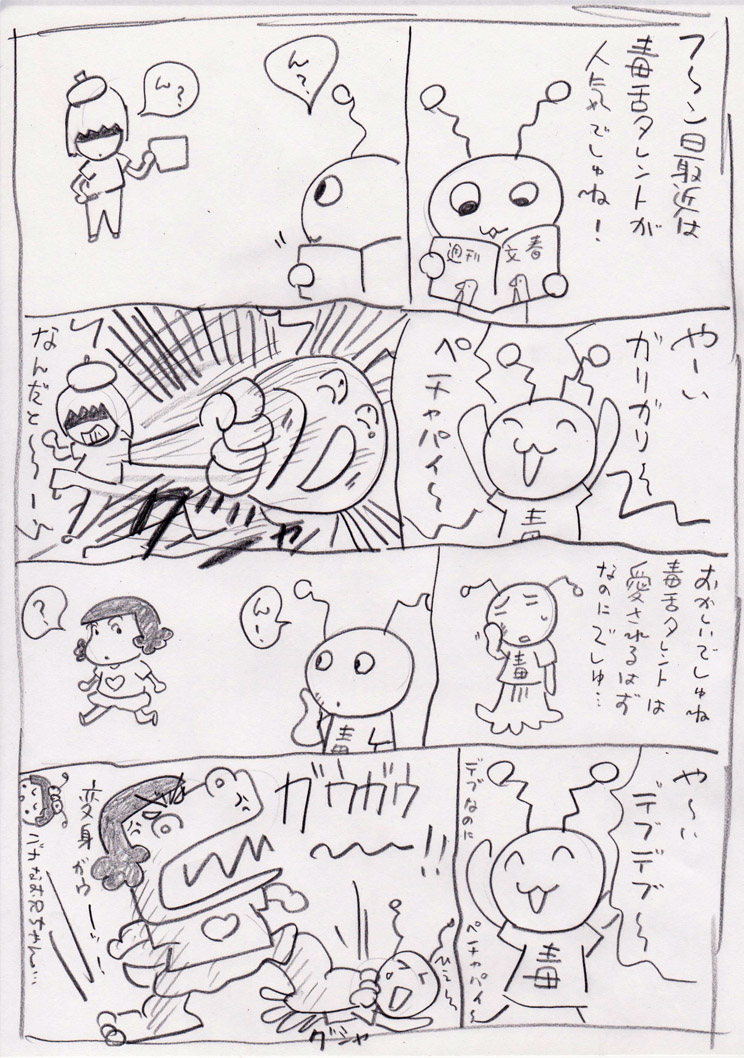 フ〜ン最近は
毒舌タレントが
人気でしゅね！
週刊
文春
ん？
ん？
やーい
ガリガリ〜
ペチャパイ〜
毒
なんだと〜〜ー
グシャ
おかしいでしゅね
毒舌タレントは
愛されるはず
なのにでしゅ…
毒
んー
毒
？
や〜い
デブデブ〜
デブなのに
ペチャパイ〜
毒
ガウガウ
〜〜!!
変身ガウーッ!
ひ〜〜
グシャ
バカなお兄ちゃん…